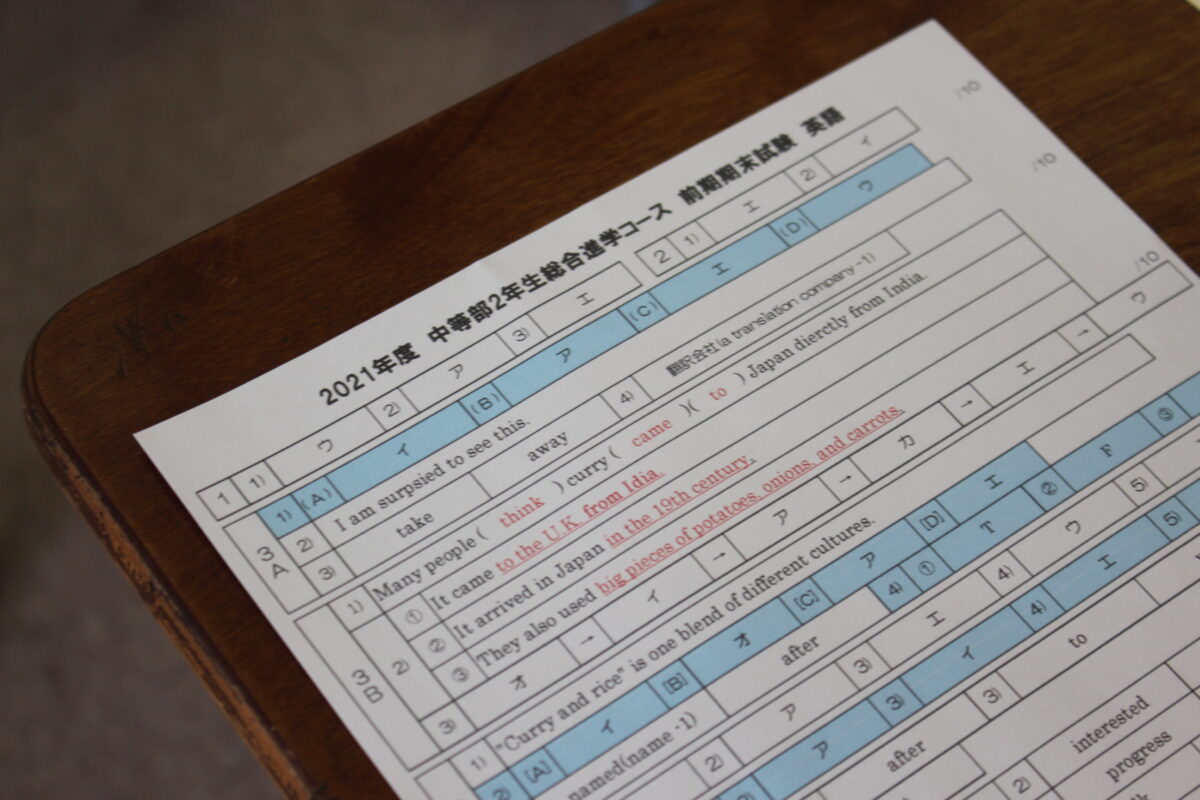 2021年度 中等部2年生総合進学コース 前期期末試験 英語
/10
1 1) ウ 2) ア 3) エ 2 1) エ 2) イ
/10
3A 1) (A) イ (B) ア (C) エ (D) ウ
2) I am surpsied to see this.
3) take away 4) 翻訳会社(a translation company -1)
/10
3B 1) Many people ( think ) curry ( came )( to ) Japan dierctly from India.
2) ① It came to the U.K. from Idia.
② It arrived in Japan in the 19th century.
③ They also used big pieces of potatoes, onions, and carrots.
3) オ → イ → ア → カ → エ → ウ
1) "Curry and rice" is one blend of different cultures.
2) [A] イ [B] オ [C] ア [D] エ
named(name -1) after 4) ① T ② F ③
2) ア 3) エ 4) ウ 5)
ア 3) イ 4) エ 5)
after 3) to
2) interested
progress